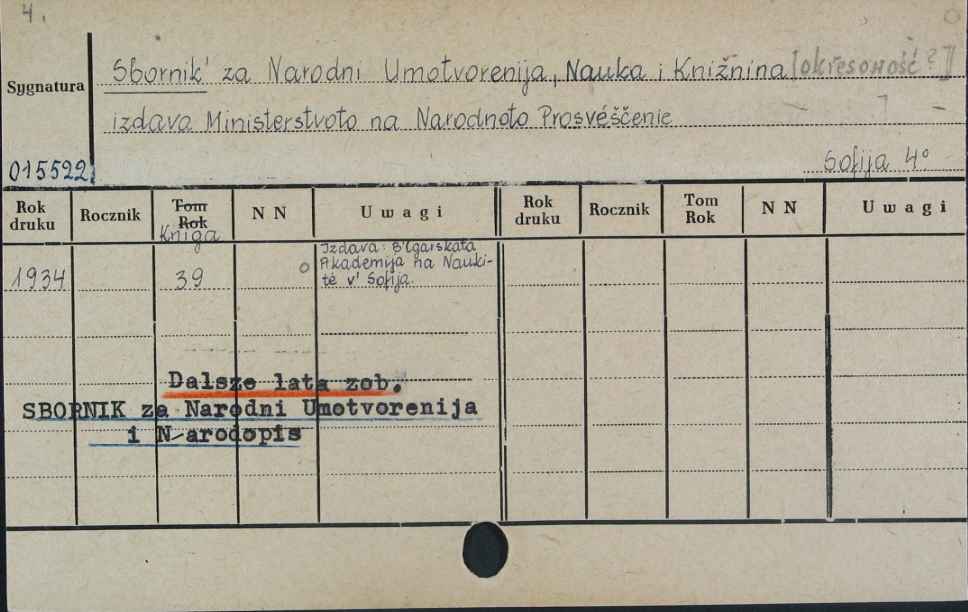 4.
Sbornik' za Narodni Umotvorenija, Nauka i Knižnina [okresoność?]
Sygnatura
izdava Ministerstvoto na Narodnoto Prosvěščenie
015522
Sofija 4°
Rok druku Rocznik Tom Rok Kniga N N Uwagi Rok druku Rocznik Tom Rok N N Uwagi
1934 39 Izdava: B'lgarskata
Akademija na Nauki-
tě v' Sofija.
Dalsze lata zob.
SBORNIK za Narodni Umotvorenija
i N-arodopis